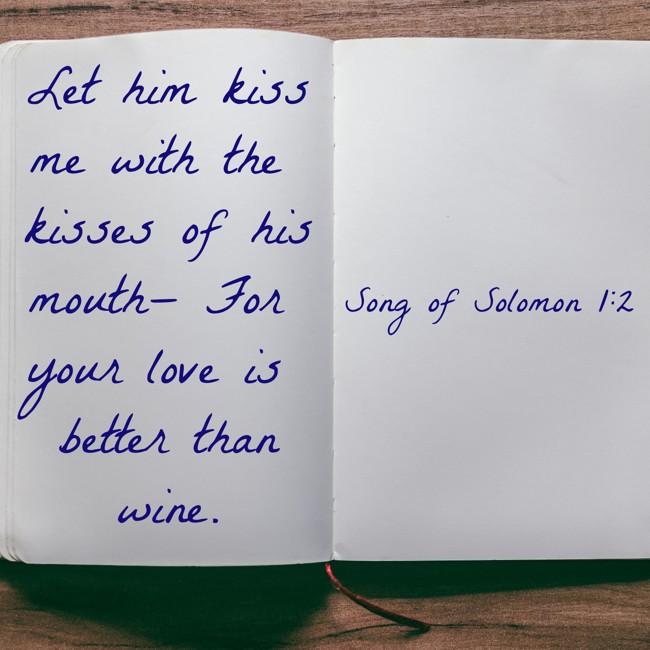 Let him kiss
me with the
kisses of his
mouth— For
your love is
better than
wine.
Song of Solomon 1:2